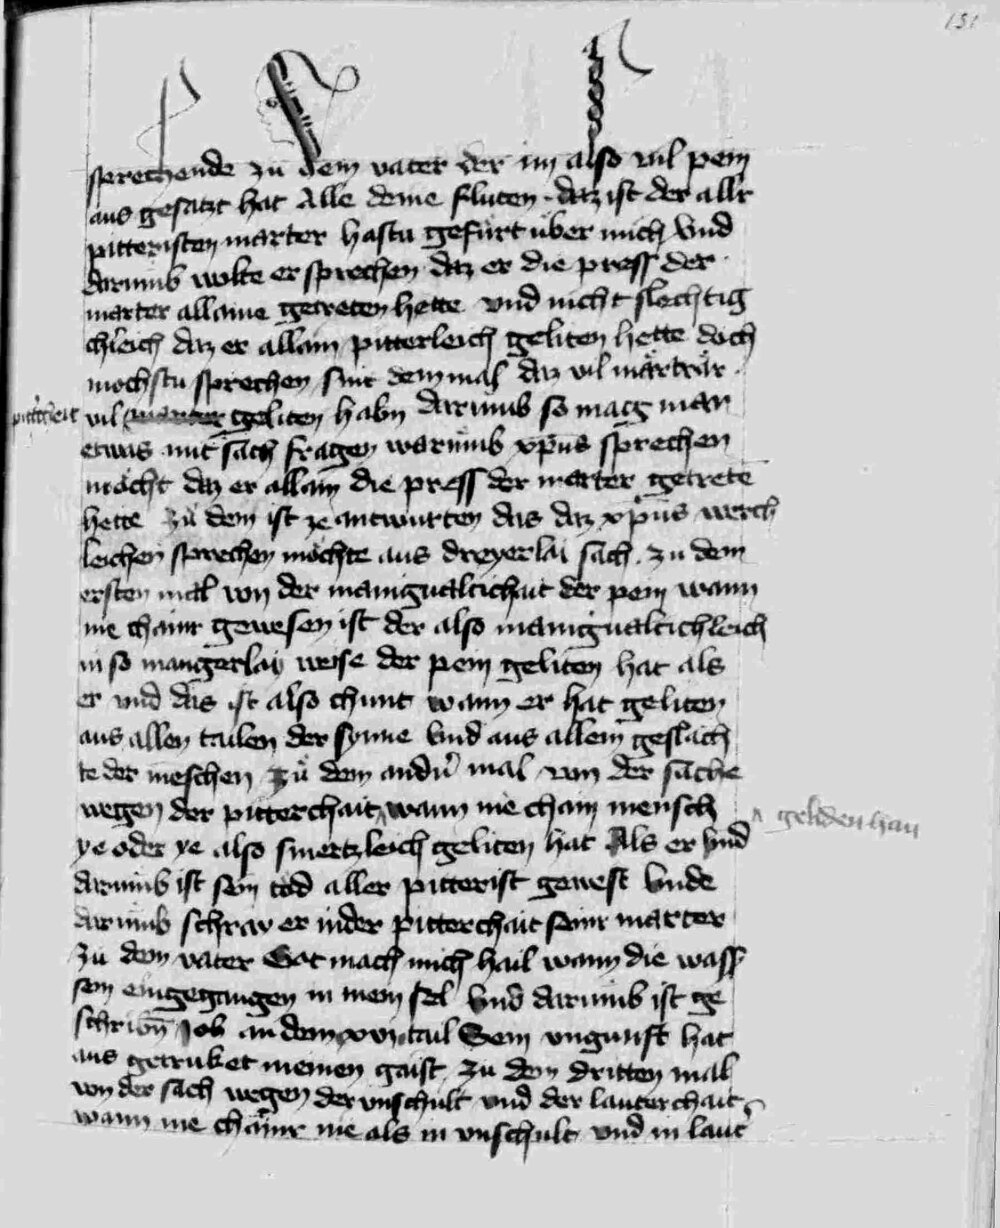 151
sprechende zu dem vater der im also vil pein
aus gesatzt hat Alle deine fluten daz ist der allr
pitteristen marter hastu gefürt über mich Vnd
darumb wolte er sprechen daz er die press der
marter allaine getreten hette vnd nicht slechtig
chleich daz er allain pitterleich geliten hette doch
mochstu sprechen sint demmal daz vil märträr
vil marter geliten habn darumb so mag man
etwas mit sach fragen warumb xp̄us sprechen
möcht daz er allain die press der marter getretē
hette Zu dem ist ze antwurten das daz xp̄us werch
leichen sprechen möchte aus dreyerlai sach. zu dem
ersten mal von der manigualtichait der pein wann
nie chainr gewesen ist der also manigualtichleich
in so mangerlay weise der pein geliten hat als
er vnd das ist also chunt wann er hat geliten
aus allen tailen der synne Vnd aus allem geslach
te der meschen Zu dem andn̄ mal von der sache
wegen der pitterchait wann nie chain mensch
geliden han
ye oder ye also smertzleich geliten hat Als er Vnd
darumb ist sein tod aller pitterist gewest Vnde
darumb schray er inder pitterchait seinr marter
Zu dem vater Got mach mich hail wann die wass̄
sein eingegangen in mein sel Vnd darumb ist ge
schribn̄ Job an dem xvi tail Sein vngunst hat
aus getruket meinen gaist Zu dem dritten mal
von der sach wegen der vnschult vnd der lauterchait
wann nie chainr nie als in vnschult vnd in laut̄